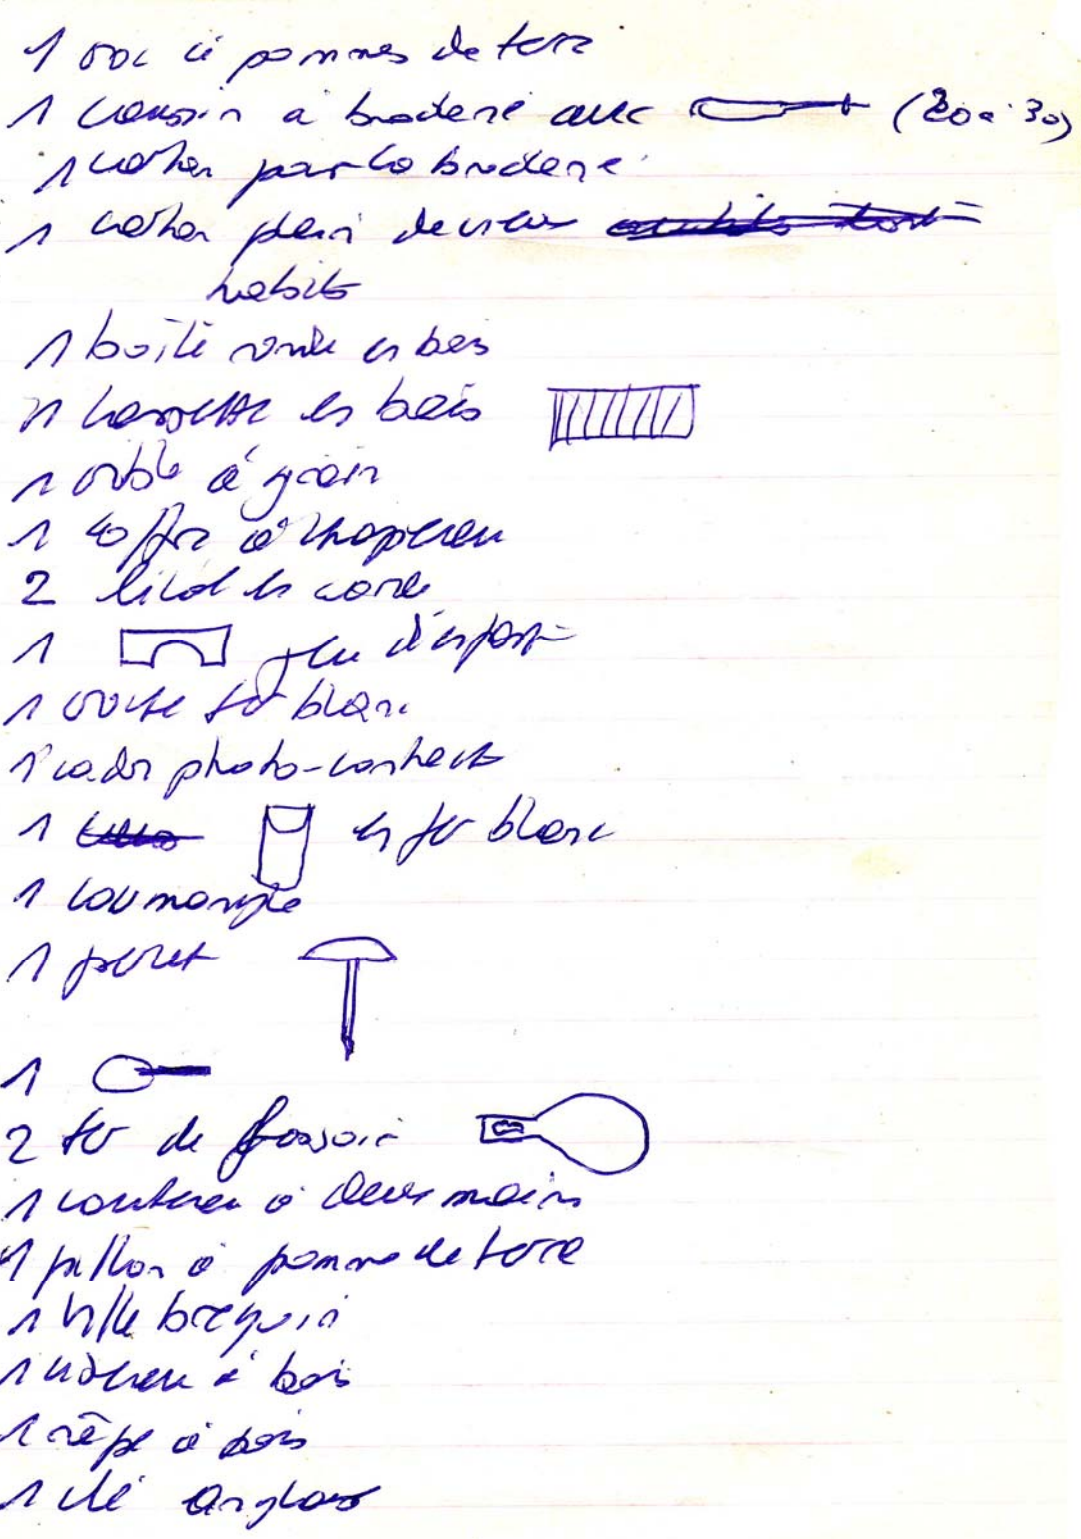 1 sac à pommes de terre
1 coussin à broderie avec (20 a 30)
1 carton par la broderie
1 carton plein de vieux
habits
1 boîte ronde en bois
1 en bois
1 sable à grain
1 coffre à chapeau
2 licol en corde
1 jeu d'enfant
1 fer blanc
1 cadre photo-contact
1 en fer blanc
1
1 piolet
1
2 fer de fossoir
1 couteau à deux mains
1 pillon à pomme de terre
1 vilbrequin
1 ciseau à bois
1 râpe à bois
1 clé anglaise